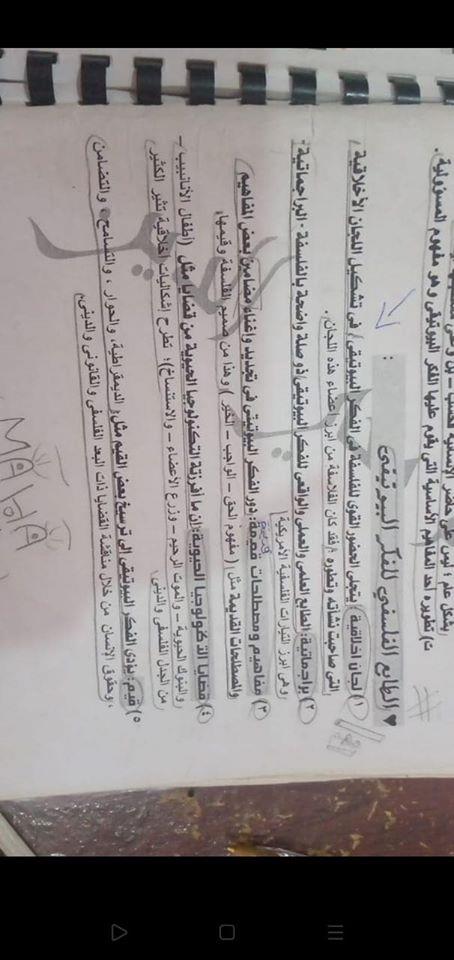 بشكل عام ؛ ليس على حاضر الإنسانية فحسب –
ت) تطويره أحد المفاهيم الأساسية التي يقوم عليها الفكر البيوتيقي وهو مفهوم المسؤولية.
♥ الطابع الفلسفي للفكر البيوتيقي :
١) لجان أخلاقية: يتجلى الحضور القوي للفلسفة في الفكر البيوتيقي، في تشكيل اللجان الأخلاقية
التي صاحبت نشأته وتطوره ؛ لقد كان الفلاسفة من أبرز أعضاء هذه اللجان.
٢) براجماتية: الطابع العلمي والعملي والواقعي للفكر البيوتيقي ذو صلة واضحة بالفلسفة - البراجماتية -
وهي أبرز التيارات الفلسفية الأمريكية
٣) مفاهيم ومصطلحات قديمة: دور الفكر البيوتيقي في تجديد وإغناء مضامين بعض المفاهيم
والمصطلحات القديمة مثل ( مفهوم الحق – الواجب – الخير ) وهذا من صميم الفلسفة وقيمها.
٤) قضايا التكنولوجيا الحيوية: إن ما أفرزته التكنولوجيا الحيوية من قضايا مثل (أطفال الأنابيب –
والبنوك الحيوية – والموت الرحيم – وزرع الأعضاء – والاستنساخ)؛ تطرح إشكاليات أخلاقية تثير الكثير
من الجدل الفلسفي والديني
٥) قيم: يؤدي الفكر البيوتيقي إلى ترسيخ بعض القيم مثل: الديمقراطية، والحوار ، والتسامح ، والتضامن
، وحقوق الإنسان من خلال مناقشة القضايا ذات البعد الفلسفي والقانوني والديني.
MAHA